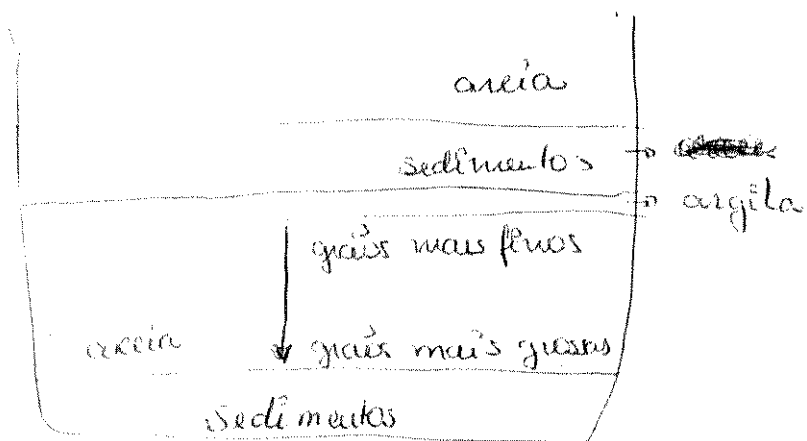 areia
sedimentos →
→ argila
grãos mais finos
areia
grãos mais grossos
sedimentos